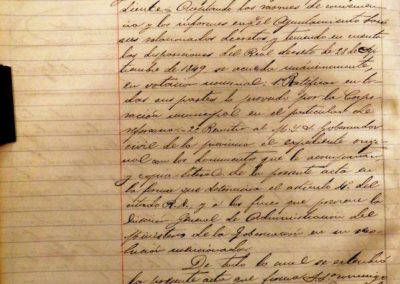 diente. Aceptando las razones de convenien-
cia y los informes en el Ayuntamiento
sus relacionados decretos y teniendo en cuenta
las disposiciones del Real decreto de 28 de
tiembre de 1849 se acuerda unánimemente
en votación nominal: 1º Ratificar en to-
das sus partes lo provado por la Corpo-
ración municipal en el particular de
referencia. 2º Remitir al M. I. S. Gobernador
civil de la provincia el expediente origi-
nal con los documentos que le acompañan
y copia literal de la presente acta en
la forma que determina el artículo 4º del
citado R. D. y a los fines que previene la
Dirección General de Administración del
Ministerio de la Gobernación en su reso-
lución mencionada.
De todo lo cual se extenderá
la presente acta que firma